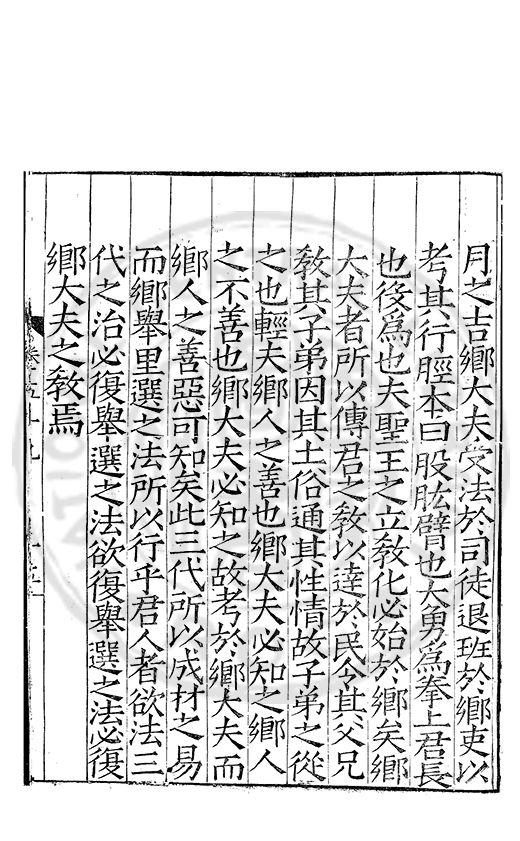 月之吉鄉大夫受法於司徒退班於鄉吏以
考其行脛本曰股肱臂也大勇爲拳上君長
也後爲也夫聖王之立敎化必始於鄉矣鄉
大夫者所以傳君之敎以達於民令其父兄
敎其子弟因其土俗通其性情故子弟之從
之也輕夫鄉人之善也鄉大夫必知之鄉人
之不善也鄉大夫必知之故考於鄉大夫而
鄉人之善惡可知矣此三代所以成材之易
而鄉舉里選之法所以行乎君人者欲法三
代之治必復舉選之法欲復舉選之法必復
鄉大夫之敎焉